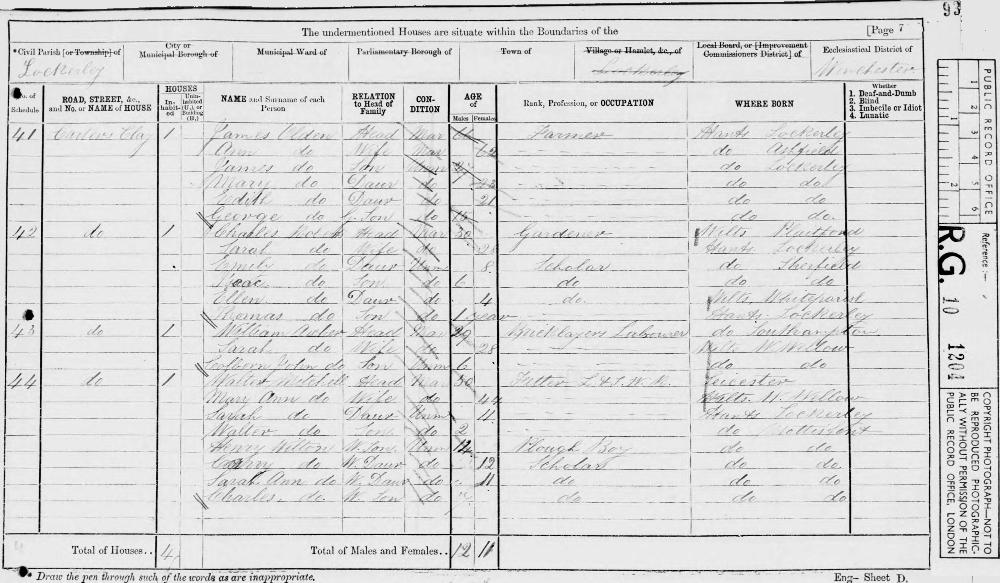 93
The undermentioned Houses are situate within the Boundaries of the [Page 7
*Civil Parish [or Township] of
City or Municipal Borough of
Municipal Ward of
Parliamentary Borough of
Town of
Village or Hamlet, &c., of
Local Board, or [Improvement Commissioners District] of
Ecclesiastical District of
Lockerley
Winchester
No. of Schedule
ROAD, STREET, &c., and No. or NAME of HOUSE
HOUSES
Inhabited
Uninhabited (U.), or Building (B.)
NAME and Surname of each Person
RELATION to Head of Family
CONDITION
AGE of
Males
Females
Rank, Profession, or OCCUPATION
WHERE BORN
Whether
1. Deaf-and-Dumb
2. Blind
3. Imbecile or Idiot
4. Lunatic
41 1 James Head Mar Farmer Hants Lockerley
Ann do Wife Mar 62 do
James do Son do Lockerley
Mary do Daur do do do
Edith do Daur do 21 do do
George do Son do 15 do do
42 do 1 Charles Head Mar 30 Gardener Wilts Plaitford
Sarah do Wife do 28 Hants Lockerley
Emily do Daur Unm 8 Scholar do Sherfield
Isaac do Son do 6 do do do
Ellen do Daur do 4 do Wilts Whiteparish
Thomas do Son do 1 year Hants Lockerley
43 do 1 William Head Mar 29 Bricklayers Labourer do Southampton
Sarah do Wife do 28 Wilts W. Willow
John do Son Unm 6 do do
44 do 1 Walter Mitchell Head Mar 30 Leicester
Mary Ann do Wife do 44 Wilts W. Willow
Sarah do Daur Unm 11 Hants Lockerley
Walter do Son do 2 do Mottisfont
Henry Wilton W. Son Unm 14 Plough Boy do do
do W. Daur do 12 Scholar do do
Sarah Ann do W. Daur do 11 do do do
Charles do W. Son do do do do
Total of Houses.. 4
Total of Males and Females.. 12 11
* Draw the pen through such of the words as are inappropriate.
Eng- Sheet D.
PUBLIC RECORD OFFICE
1 2 3 4 5 6
1 2
Reference:-
R.G. 10 1204
COPYRIGHT PHOTOGRAPH—NOT TO BE REPRODUCED PHOTOGRAPHICALLY WITHOUT PERMISSION OF THE PUBLIC RECORD OFFICE, LONDON